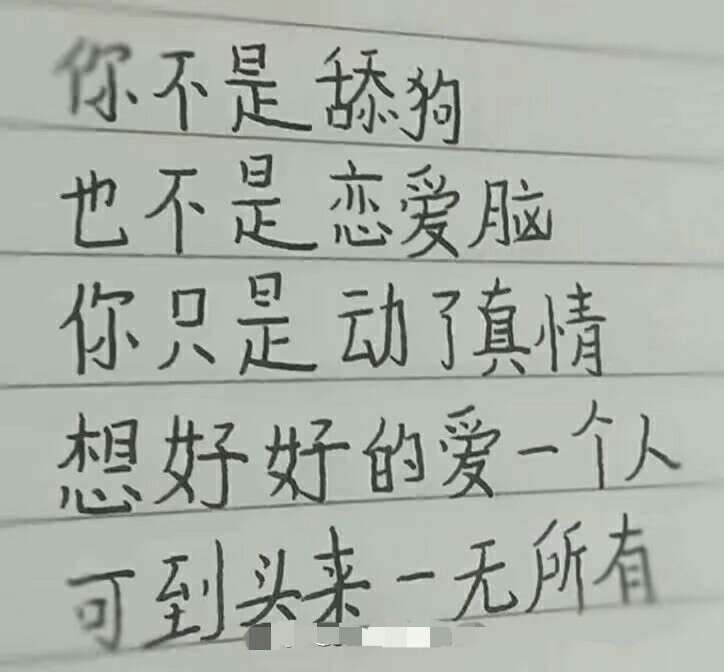 你不是舔狗
也不是恋爱脑
你只是动了真情
想好好的爱一个人
可到头来一无所有